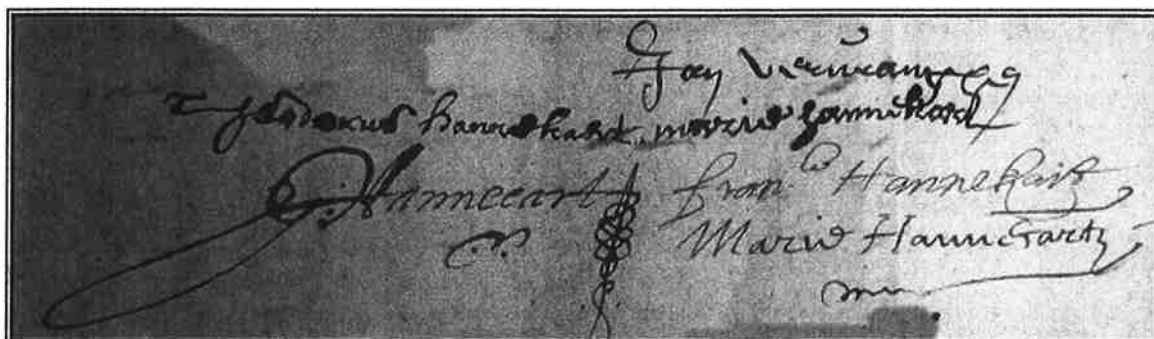 Jan
Theodorus hannekart marie hannekart
Hannecart fran.co Hannekart
Marie Hannekart